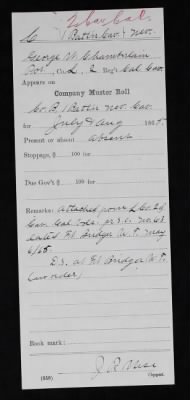 2 Cav. Cal.
C | Battn Cav. | Nev.
George W. Chamberlain
Pvt., Co. L, 2 Reg't Cal. Cav.
Appears on
Company Muster Roll
Co. B, 1 Battn Nev. Cav.
for July & Aug, 1865
Present or absent absent
Stoppage, $ 100 for
Due Gov't $ 100 for
Remarks: Attached from L Co. 2d
Cav. Cal. Vols. pr. S.O. No. 63
dated Ft. Bridger U.T. May
6/65
D.S. at Ft. Bridger U.T.
(no order)
Book mark:
(359)
Copyist.